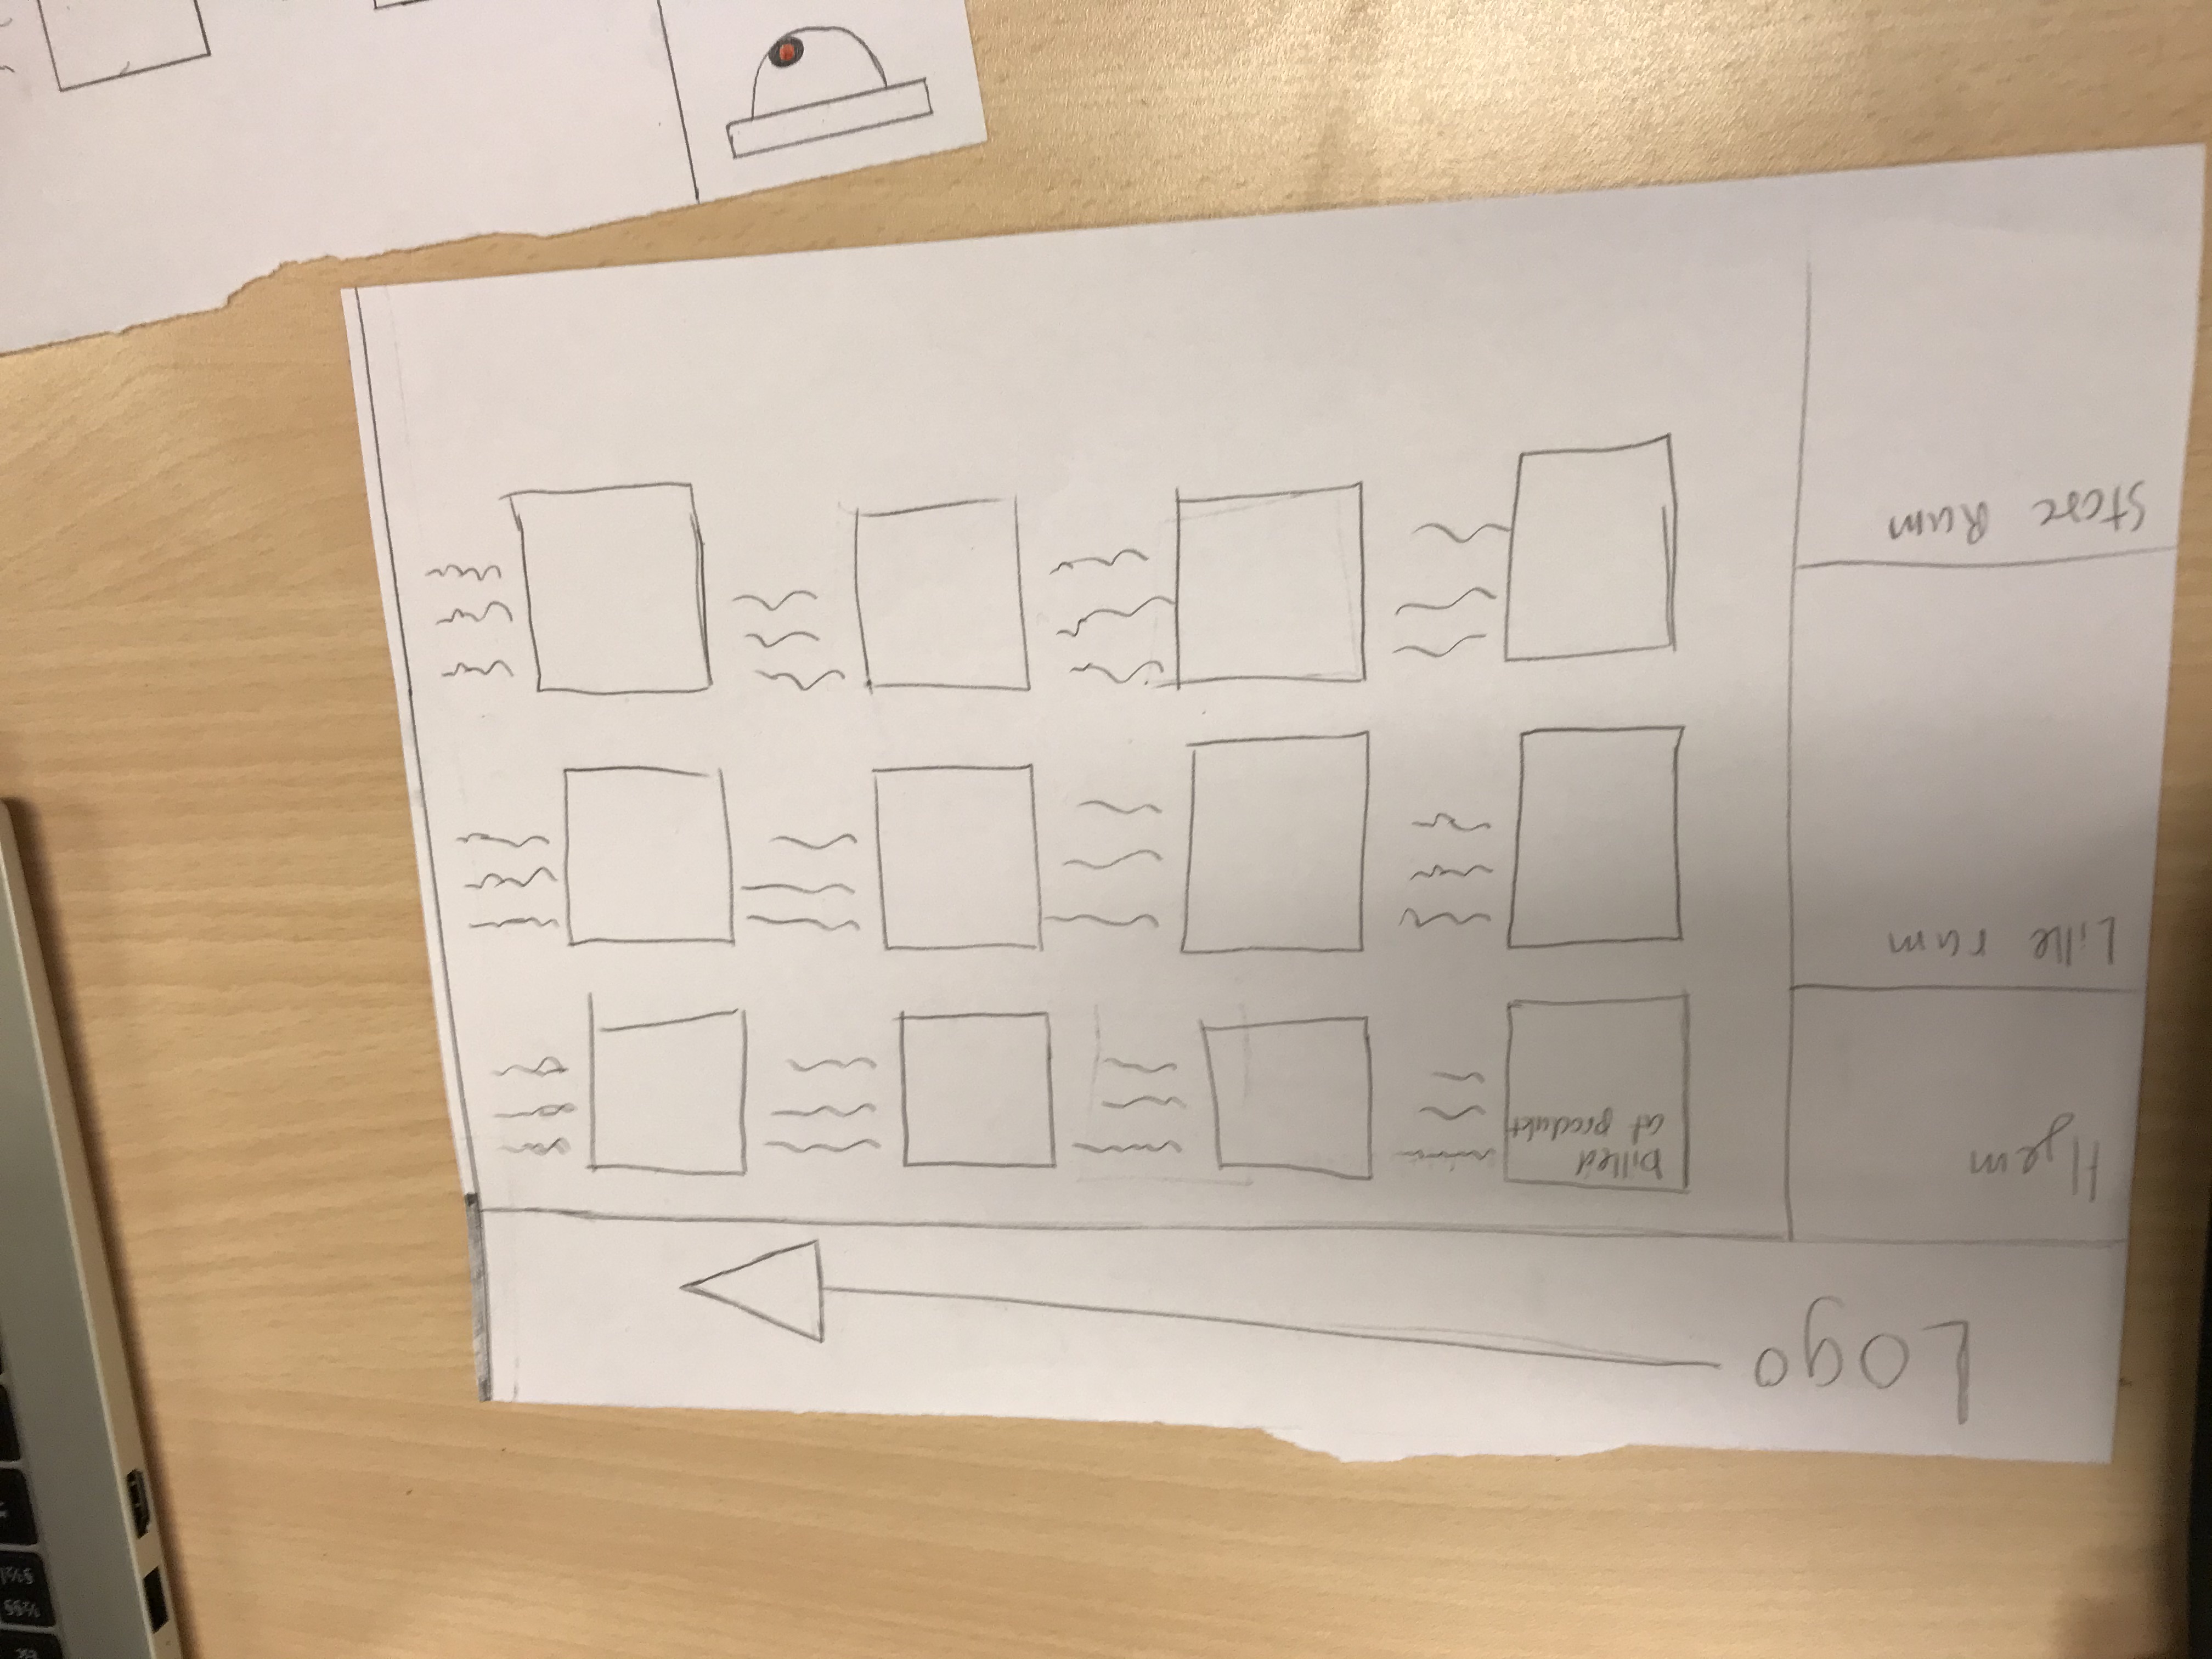 Logo
Hjem
Lille rum
Store Rum
billed
at produkt